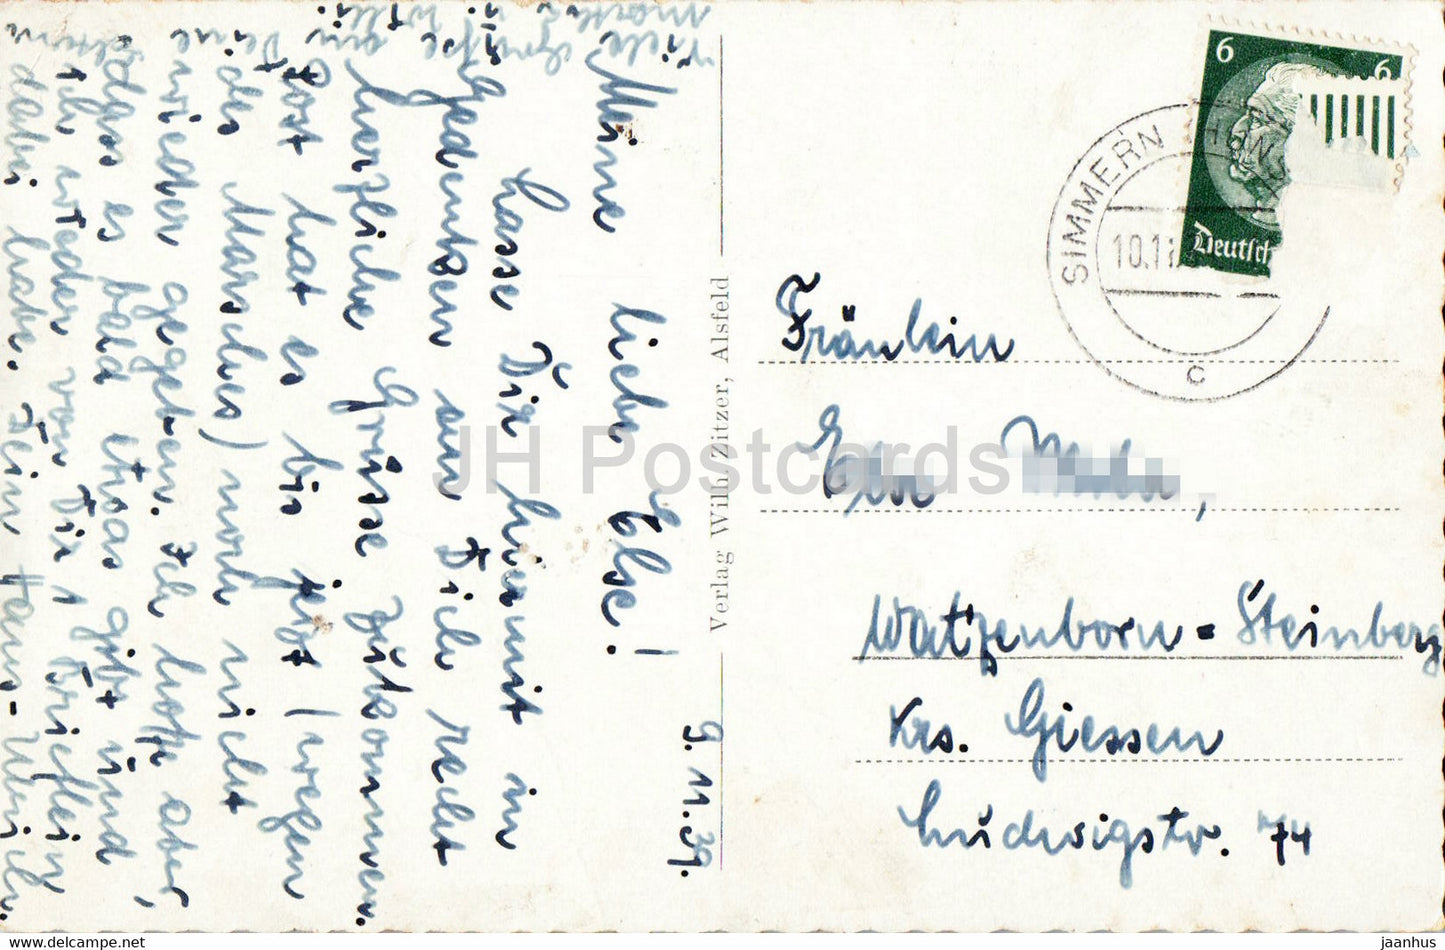 9. 11. 39.
Meine liebe Else!
Lasse Dir hiermit in
Gedenken an Dich recht
herzliche Grüsse zukommen.
Post hat es bis jetzt (wegen
des Marsches) noch nicht
wieder gegeben. Ich hoffe aber,
dass es bald etwas gibt und
ich wieder von Dir 1 Brieflein
dabei habe. Dein Hans-Ulrich.
Viele Grüsse an Deine Eltern
Martha u. Willi.
Verlag Wilh. Zitzer, Alsfeld
6 6
Deutsch
SIMMERN (HUNS
10.11.
c
Fräulein
Else
Watzenborn=Steinberg
Krs. Giessen
Ludwigstr. 74
JH Postcards
www.delcampe.net
jaanhus